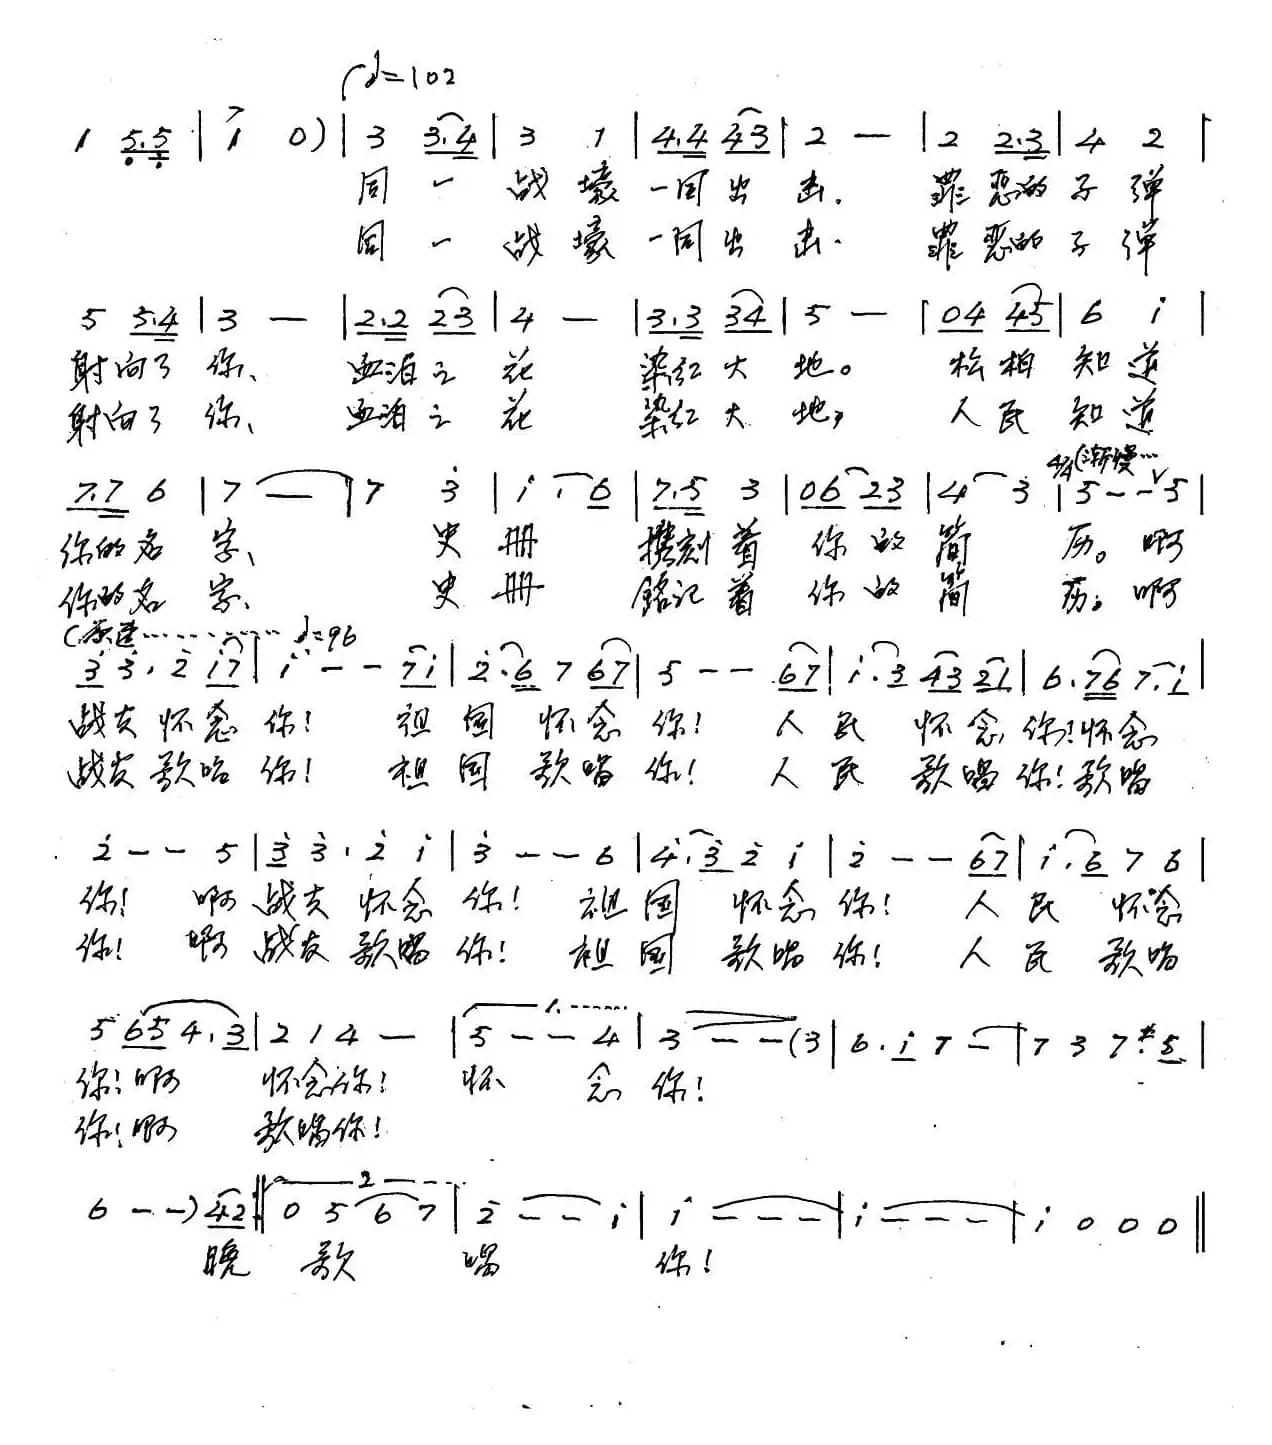 ♩=102
1 5.5 | 1 0) | 3 3.4 | 3 1 | 4.4 43 | 2 — | 2 2.3 | 4 2 |
同 一 战 壕 一同出 击. 罪 恶的 子 弹
同 一 战 壕 一同出 击. 罪 恶的 子 弹
5 5.4 | 3 — | 2.2 23 | 4 — | 3.3 34 | 5 — | 04 45 | 6 i |
射向了 你、 血泊之 花 染红大 地。 松柏 知 道
射向了 你、 血泊之 花 染红大 地, 人民 知 道
4/4 (渐慢…
7.7 6 | 7 — | 7 3 | i . 6 | 7.5 3 | 06 23 | 4 3 | 5 - - 5 |
你的名 字、 史 册 携刻着 你的 简 历。啊
你的名 字、 史 册 铭记着 你的 简 历; 啊
(原速………… ♩=96
3 3. 2 i7 | i - - 7i | 2.6 7 67 | 5 - - 67 | i.3 43 21 | 6.76 7.i |
战友怀念 你! 祖国怀念 你! 人民 怀念你!怀念
战友歌唱 你! 祖国歌唱 你! 人民 歌唱你!歌唱
2 - - 5 | 3 3. 2 i | 3 - - 6 | 4.3 2 i | 2 - - 67 | i.6 7 6 |
你! 啊 战友怀念 你! 祖国 怀念 你! 人民 怀念
你! 啊 战友歌唱 你! 祖国 歌唱 你! 人民 歌唱
1.
5 65 4.3 | 2 1 4 — | 5 - - 4 | 3 - - (3 | 6.i 7 - | 7 3 7 #5 |
你!啊 怀念你! 怀 念 你!
你!啊 歌唱你!
2
6 - -) 42 :‖ 0 5 6 7 | 2 - - i | i - - - | i - - - | i 0 0 0 ‖
晚 歌 唱 你!